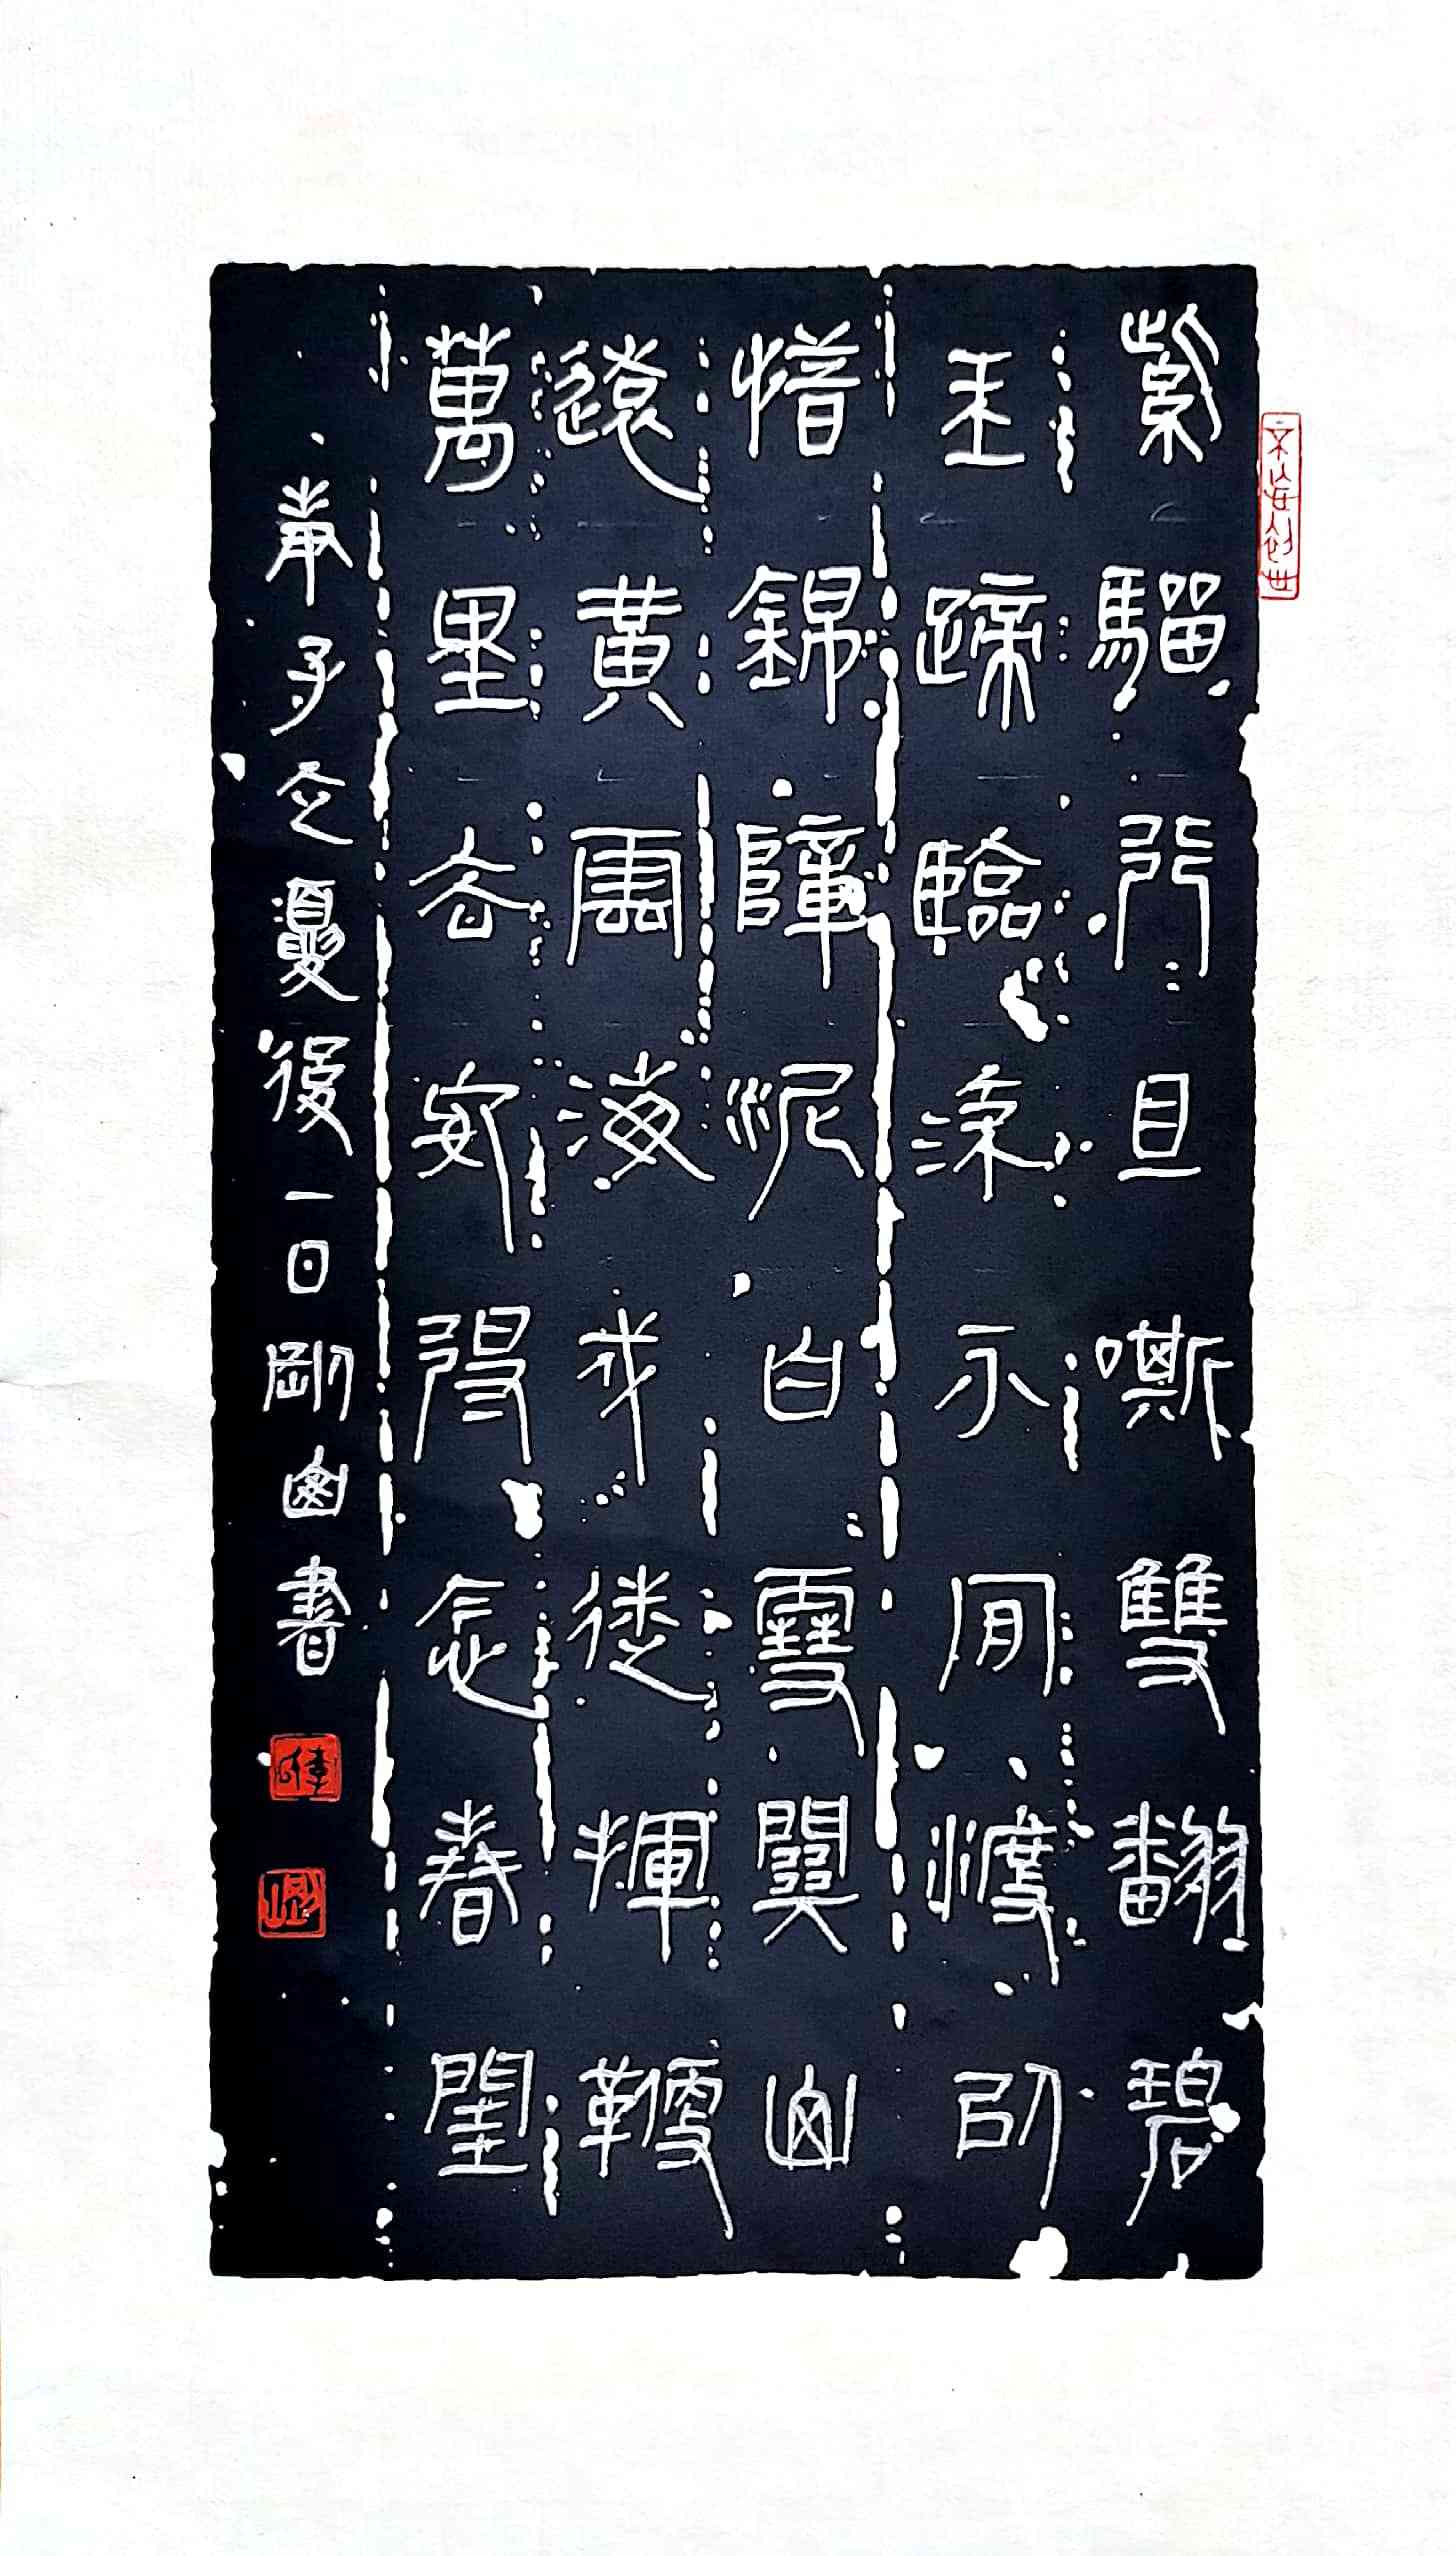 紫騮行且嘶雙翻碧
玉蹄臨流不肯渡似
惜錦障泥白雪關山
遠黃雲海戍迷揮鞭
萬里去安得念春閨
庚子立夏後一日剛山書